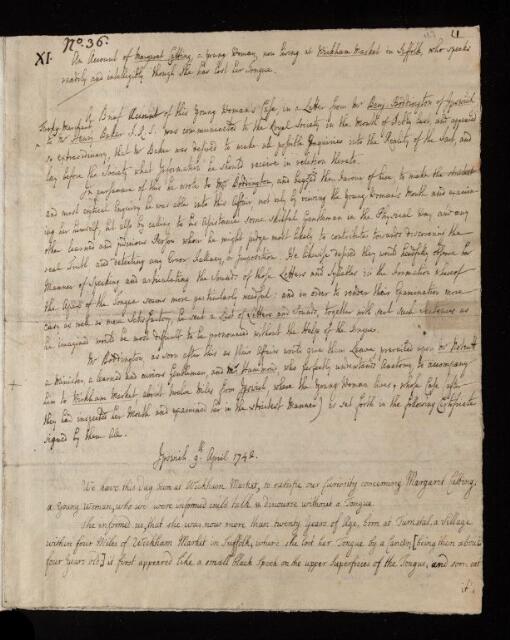 No. 36.
4
XI. An Account of Margaret Cutting, a Young Woman, now living at Wickham Market in Suffolk, who speaks
readily and intelligibly, though she has lost her Tongue.
A Brief Account of this Young Woman's Case, in a Letter from Mr Benj: Boddington of Ipswich
to Mr Henry Baker F.R.S. was communicated to the Royal Society in the Month of last, and appeared
so extraordinary, that Mr Baker was desired to make all possible Inquiries into the Reality of the Fact, and
lay before the Society what Information he should receive in relation thereto.
In pursuance of this he wrote to Mr Boddington, and begged the favour of him, to make the strictest
and most critical Enquiry he was able into this Affair, not only by viewing the Young Woman's Mouth and examin-
ing her himself, but also by calling to his Assistance some skilful Gentleman in the Physical Way, and any
other learned and judicious Person whom he might judge most likely to contribute towards discovering the
real Truth and detecting any Error Fallacy or Imposition. He likewise desired they would heedfully observe her
Manner of Speaking and articulating the Sounds of those Letters and Syllables in the Formation whereof
the Apex of the Tongue seems more particularly needful: and in order to render their Examination more
easy as well as more Satisfactory, he sent a List of Letters and Sounds, together with such Sentences as
he imagined would be most difficult to be pronounced without the Help of the Tongue.
Mr Boddington, as soon after this as their Affairs would give them Leave, prevailed upon Mr Notcutt
a Minister, a learned and curious Gentleman, and Mr Hammond, who perfectly understands Anatomy, to accompany
him to Wickham Market, about twelve Miles from Ipswich, where the Young Woman lives, whose Case (after
they had inspected her Mouth and examined her in the strictest Manner) is set forth in the following Certificate
signed by them All.
Ipswich 9th April 1742.
We have this Day been at Wickham Market, to satisfie our Curiosity concerning Margaret Cutting,
a Young Woman, who we were informed could talk & discourse without a Tongue.
She informed us, that she was now more than twenty Years of Age, born at Turnstal, a Village
within four Miles of Wickham Market in Suffolk, where she lost her Tongue by a Cancer, [being then about
four years old] it first appeared like a small black Speck on the upper Superficies of the Tongue, and soon eat
it's